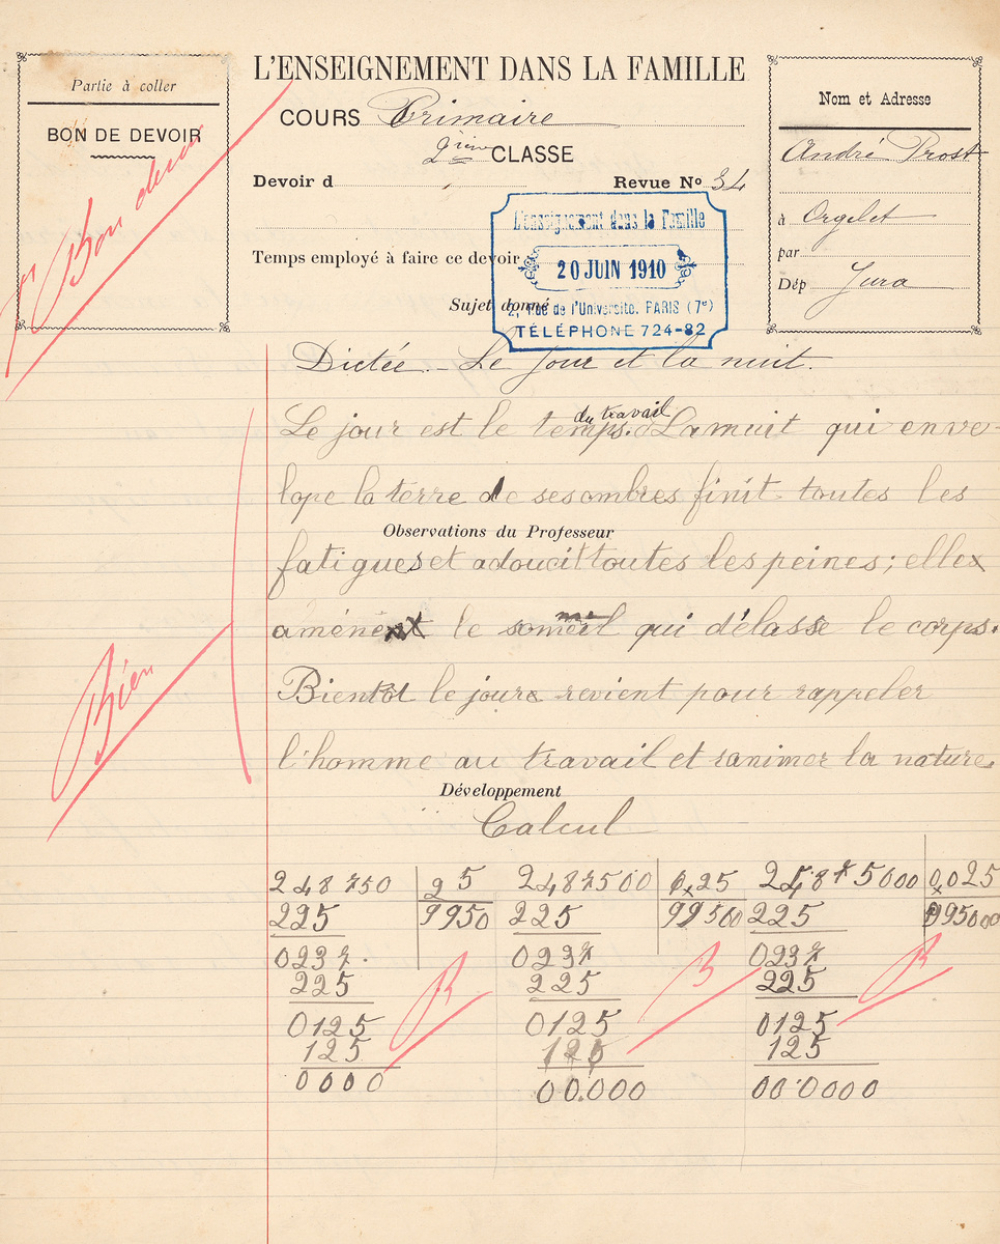 Partie à coller
BON DE DEVOIR
L'ENSEIGNEMENT DANS LA FAMILLE
COURS Primaire
2ième CLASSE
Devoir d
Revue No 34
Temps employé à faire ce devoir
Sujet donné
Nom et Adresse
André Prost
à Orgelet
par
Dép Jura
L'enseignement dans la Famille
20 JUIN 1910
2, rue de l'Université. PARIS (7e)
TÉLÉPHONE 724-82
Bon devoir
Dictée. - Le jour et la nuit.
du travail
Le jour est le temps. La nuit qui enve-
lope la terre de ses ombres finit toutes les
Observations du Professeur
fatigues et adoucit toutes les peines; elle
améne le sommeil qui délasse le corps.
Bientôt le jour revient pour rappeler
l'homme au travail et ranimer la nature.
Bien
Développement
Calcul
248750 25 2487500 0,25 24875000 0,025
225 9950 225 99500 225 995000
0237. 0237 0237
225 225 225
0125 0125 0125
125 125 125
0000 00.000 00.0000
B B B